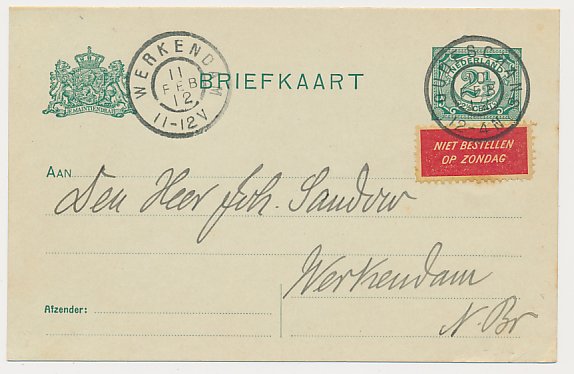 WERKENDAM
11
FEB
12
11-12V
BRIEFKAART
NEDERLAND
2½
CENT
2-4N
NIET BESTELLEN
OP ZONDAG
AAN
Den Heer Joh. Sandow
Werkendam
N. Br
Afzender: